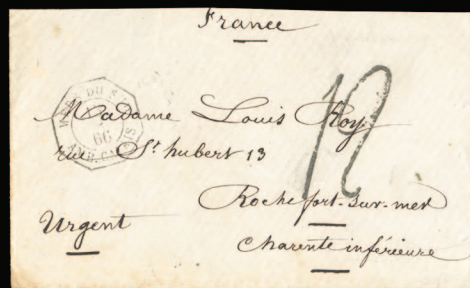 France
Madame Louis Roy
rue St. hubert 13
Rochefort-sur-mer
Urgent
Charente inférieure
12
66